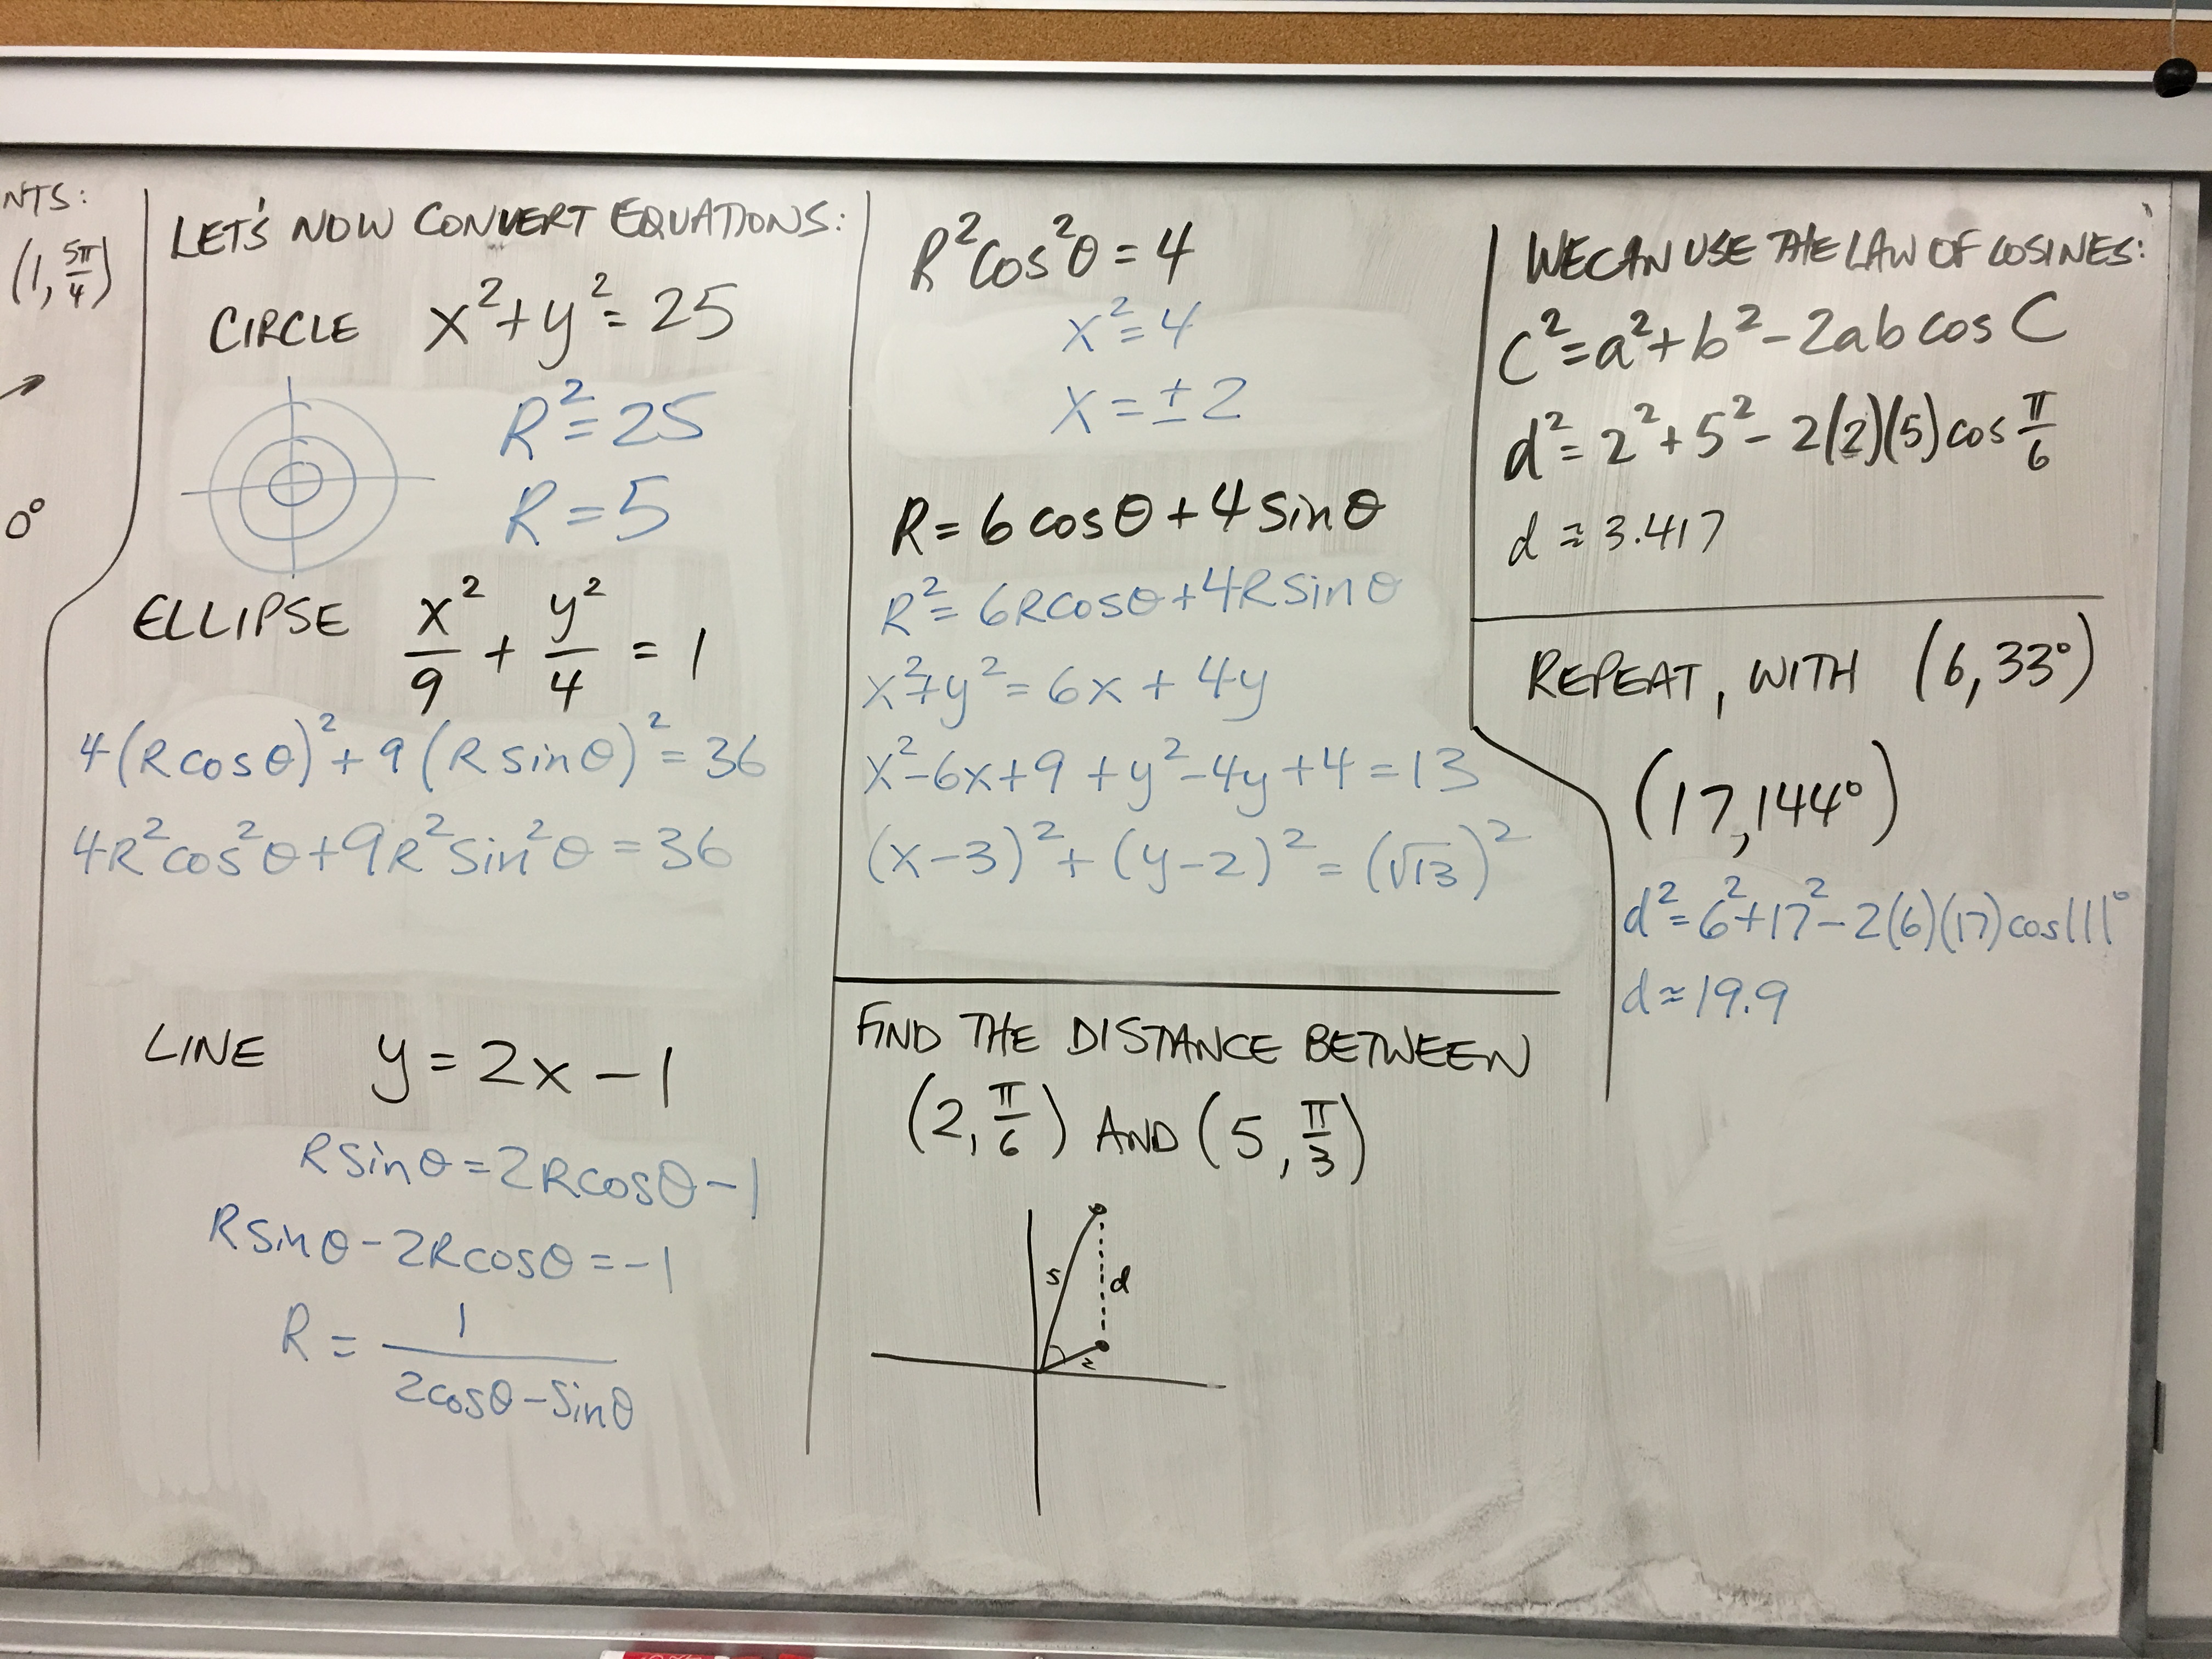 NTS:
(1, 5π/4)
0°
LET'S NOW CONVERT EQUATIONS:
CIRCLE x²+y²=25
R²=25
R=5
ELLIPSE x²/9 + y²/4 = 1
4(Rcosθ)²+9(Rsinθ)²=36
4R²cos²θ+9R²sin²θ=36
LINE y=2x-1
Rsinθ=2Rcosθ-1
Rsinθ-2Rcosθ=-1
R = 1/(2cosθ-sinθ)
R²cos²θ=4
x²=4
x=±2
R=6cosθ+4sinθ
R²=6Rcosθ+4Rsinθ
x²+y²=6x+4y
x²-6x+9+y²-4y+4=13
(x-3)²+(y-2)²=(√13)²
FIND THE DISTANCE BETWEEN
(2, π/6) AND (5, π/3)
5
d
2
WE CAN USE THE LAW OF COSINES:
C²=a²+b²-2ab cos C
d²=2²+5²-2(2)(5)cos π/6
d≈3.417
REPEAT, WITH (6,33°)
(17,144°)
d²=6²+17²-2(6)(17)cos111°
d≈19.9